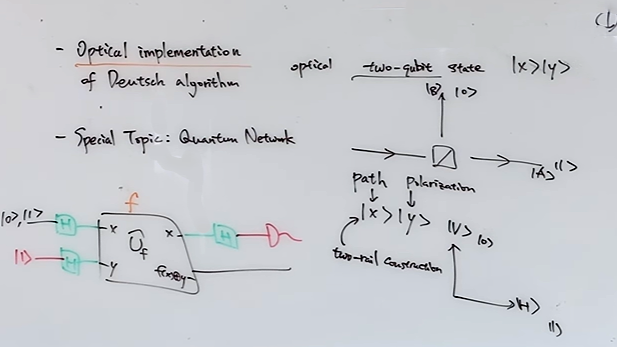 - Optical implementation
of Deutsch algorithm
- Special Topic: Quantum Network
optical two-qubit state |x>|y>
|B> |0>
|A> |1>
path polarization
|x>|y>
two-rail construction
|V> |0>
|H>
|1>
f
|0>,|1> H x Uf x H
|1> H y f(x)⊕y